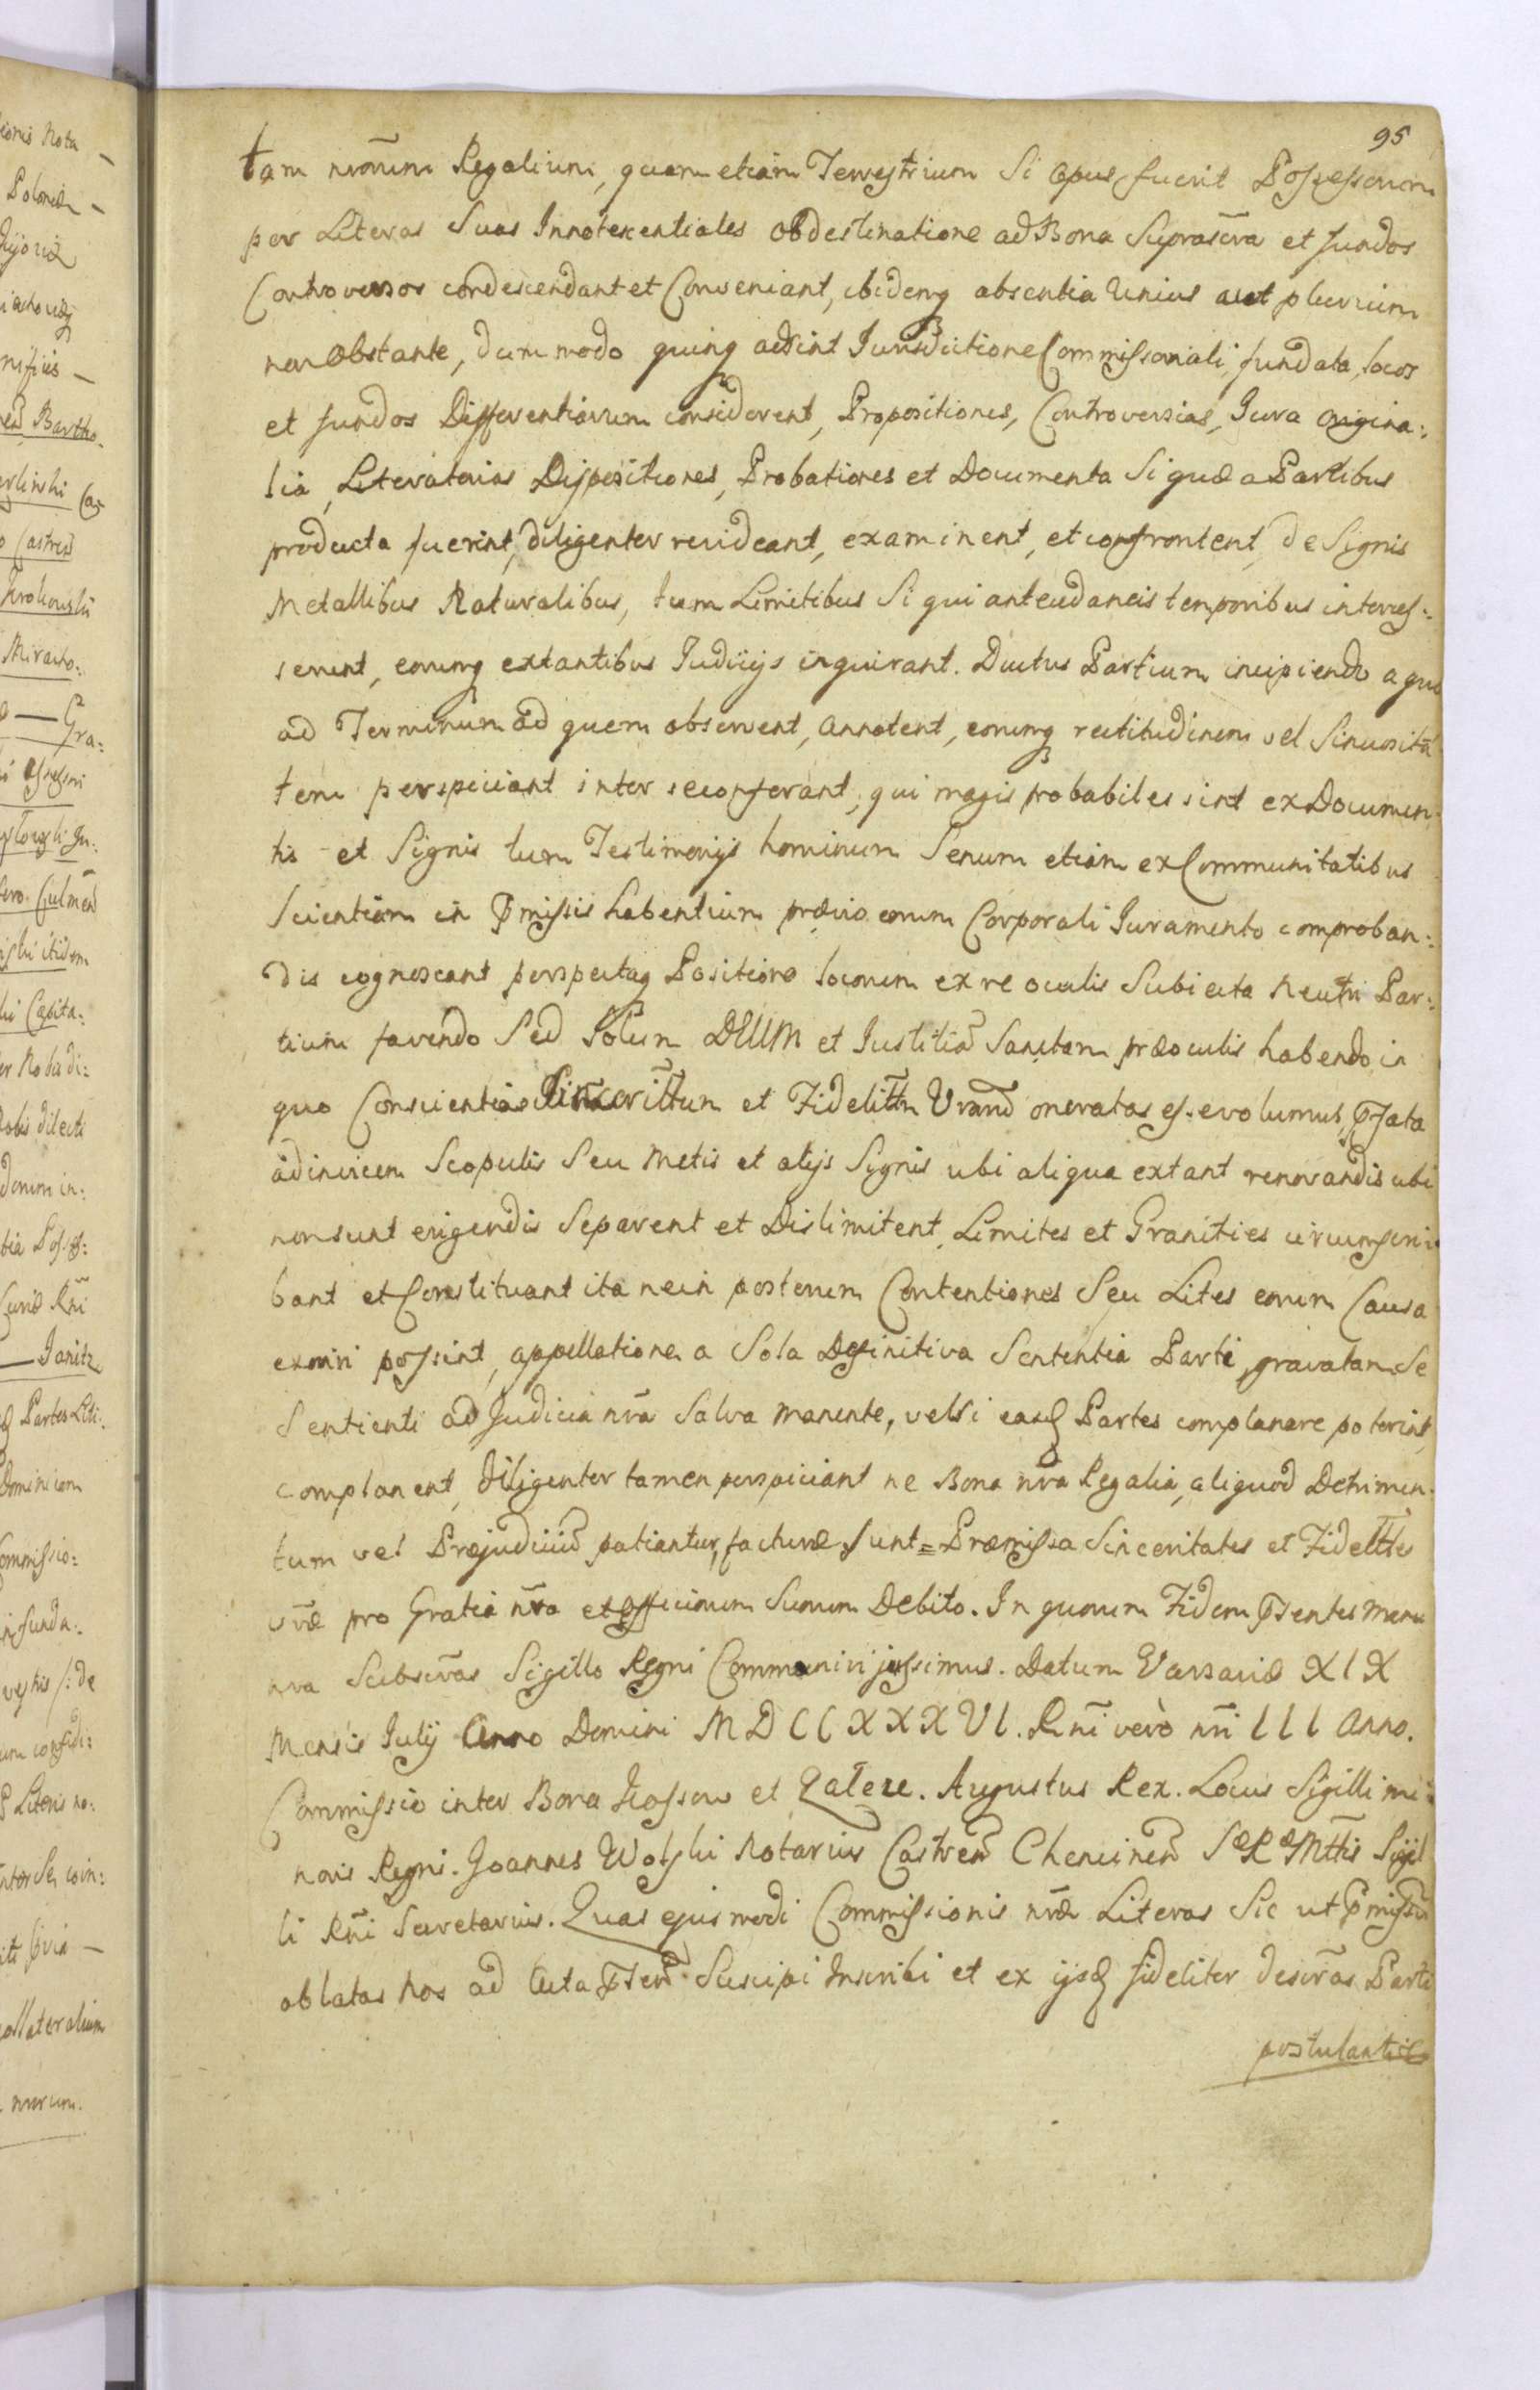 95
tam nrõrum Regalium, quam etiam Terrestrium Si opus fuerit Possessorum
per Literas Suas Innotescentiales obdestinatione ad Bona Suprascr̃a et fundos
Controversos condescendant et Conveniant, ibidemq absentia Unius aut plurium
non Obstante, dummodo quinq adsint Jurisdictione Commissoriali fundata, locos
et fundos Differentiarum considerent, Propositiones, Controversias, Jura Origina:
lia, Literatorias Dispositiones, Probationes et Documenta Si quæ a Partibus
producta fuerint, diligenter revideant, examinent, et confrontent, de Signis
Metallibus Naturalibus, tum Limitibus Si qui antecedaneis temporibus interces:
serunt, eorumq extantibus Judicijs inquirant. Ductus Partium incipiendo a quo
ad Terminum ad quem observent, annotent, eorumq rectitudinem vel Sinuosita
tem perspiciant inter se conferant, qui magis probabiles sint ex Documen
tis et Signis tum Testimonijs hominum Senum etiam ex Communitatibus
Scientiam in p̃missis habentium prævio eorum Corporali Juramento comproban:
dis cognoscant perspectaq Positione locorum ex re oculis Subiecta Neutri Par:
tium favendo Sed Solum DEUM et Justitiã Sanctam præoculis habendo in
quo Conscientias Sinceritt̃um et Fidelitt̃m Vrarũ oneratas esse volumus, p̃fata
adinvicem Scopulis Seu Metis et alijs Signis ubi aliqua extant renovandis ubi
non sunt erigendis Separent et Dislimitent, Limites et Granities circumscri
bant et Constituant ita ne in posterum Contentiones Seu Lites eorum Causa
exoriri possint, appellatione a Sola Definitiva Sententia Parti gravatam Se
Sentienti ad Judicia nr̃a Salva manente, vel Si easd Partes complanare poterint,
complanent, diligenter tamen perspiciant ne Bona nr̃a Regalia, aliquod Detrimen
tum vel Præjudiciũ patiantur, facturæ sunt = Præmissa Sinceritates et Fidelitt̃es
vr̃æ pro Gratia nr̃a et officiorum Suorum Debito. In quorum Fidem p̃sentes Manu
nra Subscr̃as Sigillo Regni Communiri jussimus. Datum Varsaviæ XIX
Mensis Julij Anno Domini MDCCXXXVI. Rñi verò nr̃i III Anno.
Commissio inter Bona Kossow et Zalexe. Augustus Rex. Locus Sigilli mi:
noris Regni. Joannes Wolski Notarius Castreñ Chencineñ SæRæMttis Sigil
li Rñi Secretarius. Quas ejusmodi Commissionis nr̃æ Literas Sic ut p̃missũ
oblatas Nos ad Acta p̃señ Suscipi Inscribi et ex ijsd fideliter descr̃as Parti
postulanti